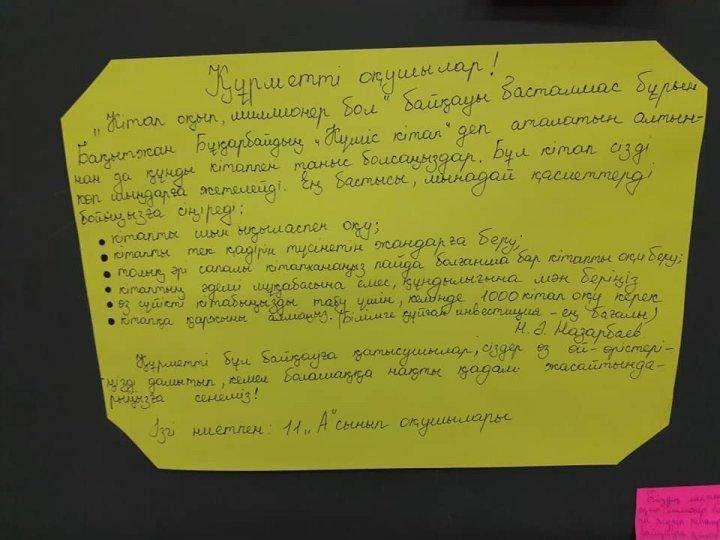 Құрметті оқушылар!
„Кітап оқып, миллионер бол" байқауы басталмас бұрын
Бақытжан Бұқарбайдың „Күміс кітап" деп аталатын алтын-
нан да құнды кітаппен таныс болсаңыздар. Бұл кітап сізді
көп шыңдарға жетелейді. Ең бастысы, мынадай қасиеттерді
бойыңызға сіңіреді:
• кітапты шын ықыласпен оқу;
• кітапты тек қадірін түсінетін жандарға беру;
• толық әрі сапалы кітапханаңыз пайда болғанша бар кітапты оқи беру;
• кітаптың әдемі мұқабасына емес, құндылығына мән беріңіз
• өз сүйікті кітабыңызды табу үшін, кемінде 1000 кітап оқу керек
• кітапқа қаржыны аямаңыз. (Білімге құйған инвестиция - ең бағалы)
Н. Ә. Назарбаев
Құрметті бұл байқауға қатысушылар, сіздер өз ой-өрістері-
ңізді дамытып, кемел болашаққа нақты қадам жасайтында-
рыңызға сенеміз!
Ізгі ниетпен: 11 „А" сынып оқушылары